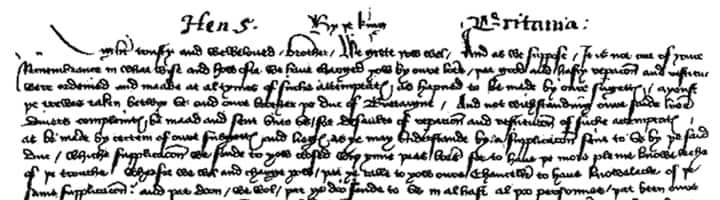 Hen 5. By þe king Britania:
Ryght trusty and welbeloved brother, We grete yow wel, And as we suppose, It is not out of youre
Remembrance in what wise and how ofte we have charged yow by oure lres, þat good and hasty reparacion and restitucion
were ordeined and maade at al tymes of suche attemptatz, as hapned to be made by oure sugettz, ayenst
þe trewes taken betwix us and oure brother þe duc of Bretaigne, And not withstanding oure saide lres
divers complaintz be maad and sent unto us, for defaulte of reparacion and restitucion of suche attemptatz
as be made by certein of oure subgettz and liegez, as ye may understande by a supplicacion sent to us by þe said
duc, Whiche supplicacion we sende to yow closed wiþ yinne þees lres for to have þe more pleine knowleche
of þe trouthe, Wherfore we wol and charge yow, þat ye calle to yow oure Chanceller to have knowleche of þe
same supplicacion: and þat doon, we wol, þat ye do sende to us in al haste al þoo persones, þat been oure